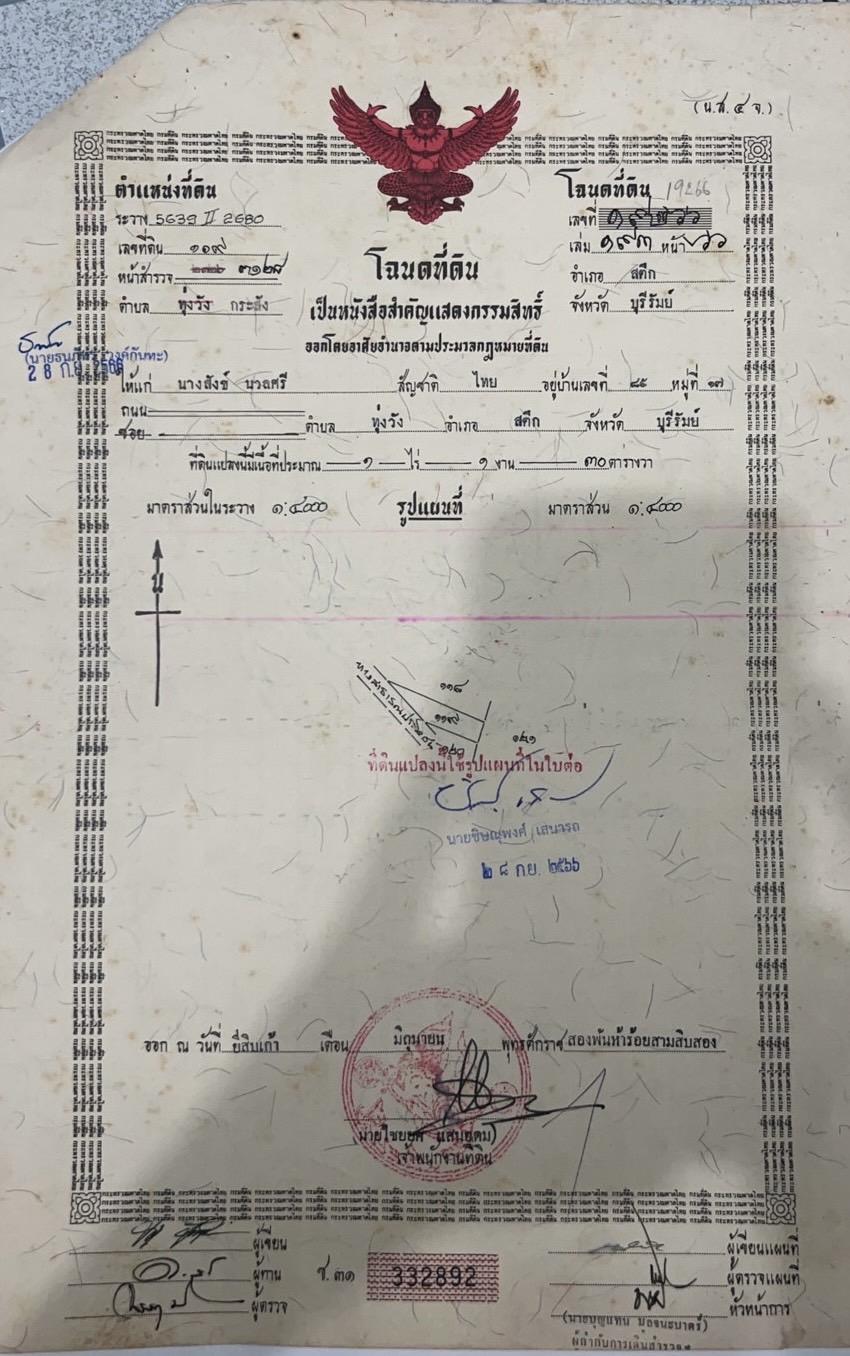 (น.ส.๔ จ.)
ตำแหน่งที่ดิน
ระวาง 5639 II 2680
เลขที่ดิน ๑๑๙
หน้าสำรวจ ๓๑๒๘
ตำบล ทุ่งวัง กระสัง
โฉนดที่ดิน 19266
เลขที่
เล่ม ๑๙๓ หน้า ๖๖
อำเภอ สตึก
จังหวัด บุรีรัมย์
โฉนดที่ดิน
เป็นหนังสือสำคัญแสดงกรรมสิทธิ์
ออกโดยอาศัยอำนาจตามประมวลกฎหมายที่ดิน
28 ก.ย. 2566
ให้แก่ นางสังข์ นวลศรี สัญชาติ ไทย อยู่บ้านเลขที่ ๘๕ หมู่ที่ ๑๗
ถนน
ซอย ตำบล ทุ่งวัง อำเภอ สตึก จังหวัด บุรีรัมย์
ที่ดินแปลงนี้มีเนื้อที่ประมาณ ๑ ไร่ ๑ งาน ๓๐ ตารางวา
มาตราส่วนในระวาง ๑:๔๐๐๐ รูปแผนที่ มาตราส่วน ๑:๔๐๐๐
น
ทางสาธารณประโยชน์
๑๑๘
๑๑๙
๑๒๐
๑๒๑
ที่ดินแปลงนี้ใช้รูปแผนที่ในใบต่อ
นายชิษณุพงศ์ เสนารถ
๒๘ ก.ย. ๒๕๖๖
ออก ณ วันที่ ยี่สิบเก้า เดือน มิถุนายน พุทธศักราช สองพันห้าร้อยสามสิบสอง
เจ้าพนักงานที่ดิน
ผู้เขียน
ผู้ทาน
ผู้ตรวจ
ช.๓๑ 332892
ผู้เขียนแผนที่
ผู้ตรวจแผนที่
หัวหน้าการ